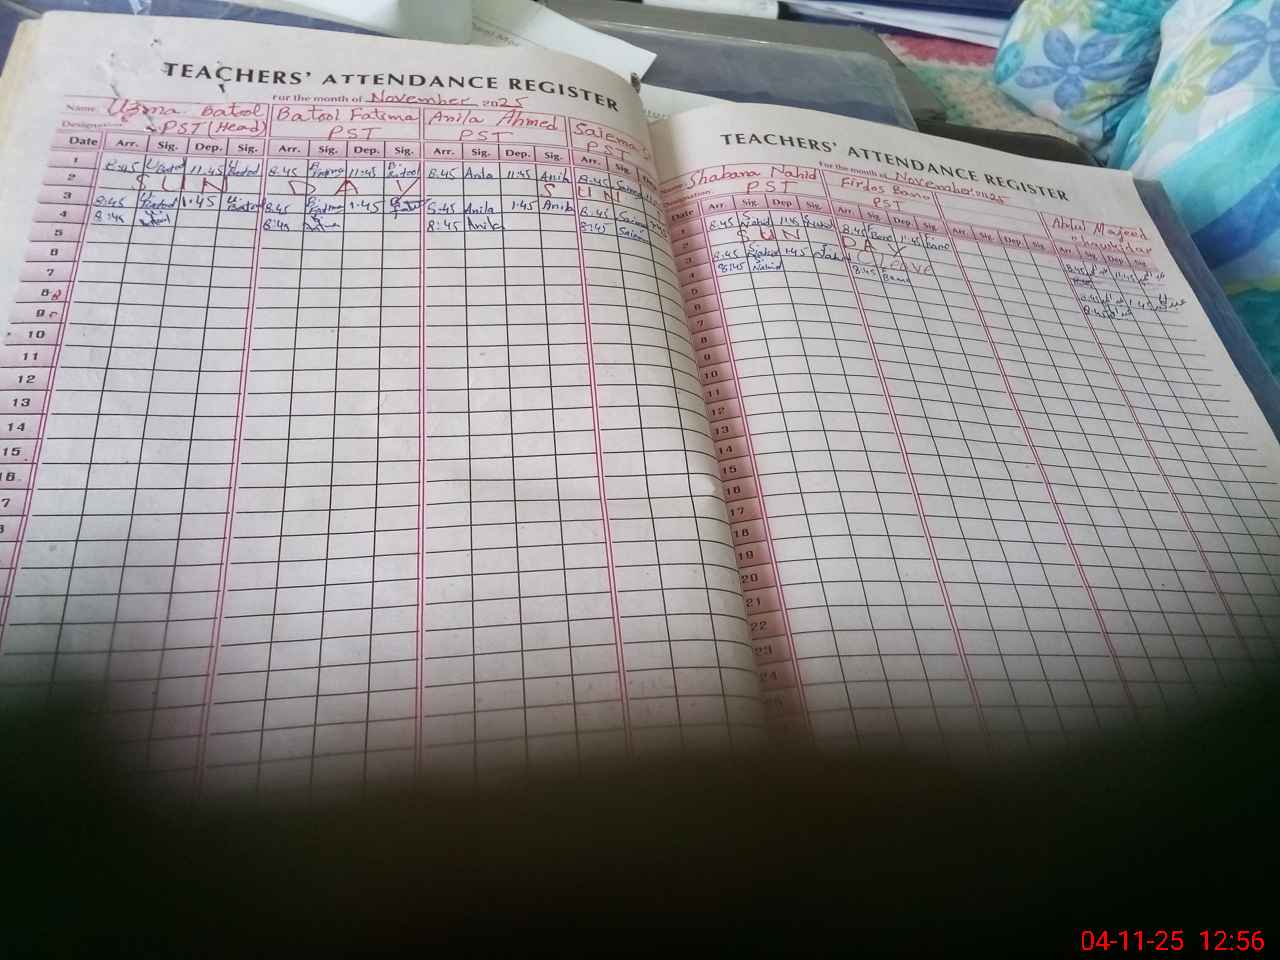 TEACHERS' ATTENDANCE REGISTER
For the month of November 2025
Name Uzma Batool Batool Fatima Anila Ahmed Saiema
Designation PST (Head) PST PST PST
Date Arr. Sig. Dep. Sig. Arr. Sig. Dep. Sig. Arr. Sig. Dep. Sig. Arr. Sig.
1 8:45 U Batool 11:45 U Batool 8:45 B. Fatima 11:45 B. 8:45 Anila 11:45 Anila 8:45
2 SUN DAY SUN
3 8:45 U Batool 1:45 U Batool 8:45 B. Fatima 1:45 8:45 Anila 1:45 Anila 8:45
4 8:45 8:45 8:45 Anila 8:45
5
6
7
8
9
10
11
12
13
14
15
16
7
TEACHERS' ATTENDANCE REGISTER
For the month of November 2025
Name Shabana Nahid Firdos Bano Abdul Majeed
Designation PST PST Chowkidar
Date Arr. Sig. Dep. Sig. Arr. Sig. Dep. Sig. Arr. Sig. Dep. Sig. Arr. Sig. Dep. Sig.
1 8:45 S Nahid 11:45 S Nahid 8:45 F Bano 11:45 F Bano 8:45 11:45
2 SUN DAY
3 8:45 S Nahid 1:45 S Nahid Leave 8:45 1:45
4 8:45 S Nahid 8:45 F Bano 8:45
5
6
7
8
9
10
11
12
13
14
15
16
17
18
19
20
21
22
23
24
04-11-25 12:56